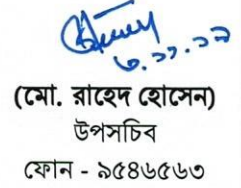 ৩.১১.১৯
(মো. রাহেদ হোসেন)
উপসচিব
ফোন - ৯৫৪৬৫৬৩